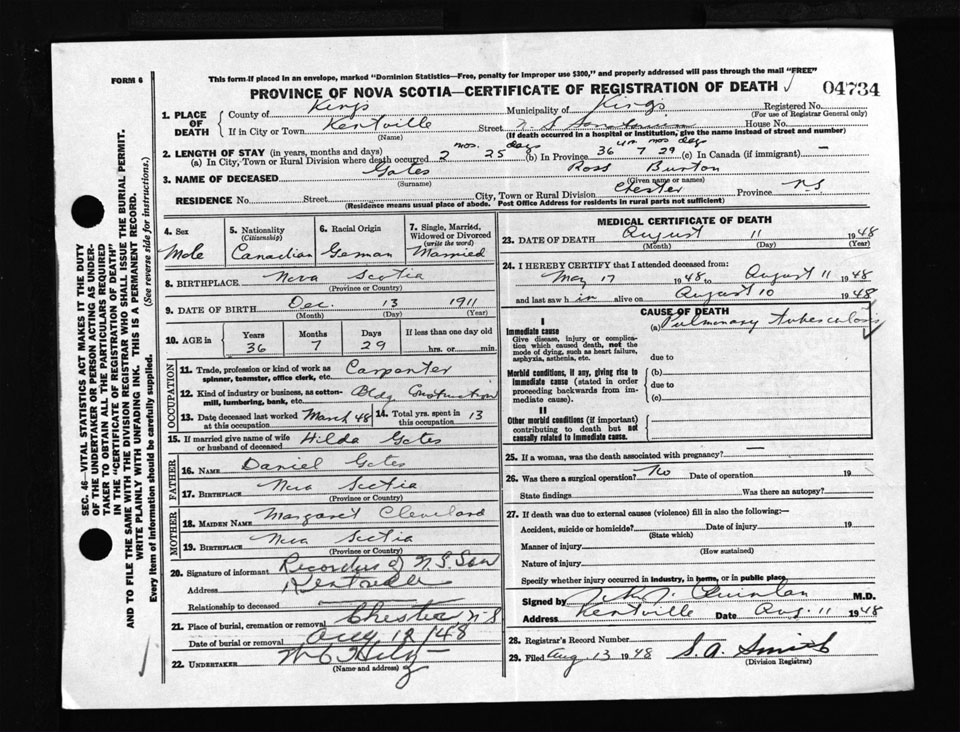 FORM 6
This form if placed in an envelope, marked "Dominion Statistics—Free, penalty for improper use $300," and properly addressed will pass through the mail "FREE"
PROVINCE OF NOVA SCOTIA—CERTIFICATE OF REGISTRATION OF DEATH 04734
SEC. 46—VITAL STATISTICS ACT MAKES IT THE DUTY
OF THE UNDERTAKER OR PERSON ACTING AS UNDER-
TAKER TO OBTAIN ALL THE PARTICULARS REQUIRED
IN THE "CERTIFICATE OF REGISTRATION OF DEATH"
AND TO FILE THE SAME WITH THE DIVISION REGISTRAR WHO SHALL ISSUE THE BURIAL PERMIT.
WRITE PLAINLY WITH UNFADING INK. THIS IS A PERMANENT RECORD.
Every item of information should be carefully supplied. (See reverse side for instructions.)
1. PLACE OF DEATH
County of Kings Municipality of Kings Registered No.
(For use of Registrar General only)
If in City or Town Kentville Street N. S. House No.
(Name) (If death occurred in a hospital or institution, give the name instead of street and number)
2. LENGTH OF STAY (in years, months and days)
(a) In City, Town or Rural Division where death occurred 2 mos. 25 days (b) In Province 36 yrs 7 mos 29 days (c) In Canada (if immigrant) —
3. NAME OF DECEASED Gates Ross Burton
(Surname) (Given name or names)
RESIDENCE No. Street City, Town or Rural Division Chester Province N.S
(Residence means usual place of abode. Post Office Address for residents in rural parts not sufficient)
4. Sex Male
5. Nationality (Citizenship) Canadian
6. Racial Origin German
7. Single, Married, Widowed or Divorced (write the word) Married
8. BIRTHPLACE Nova Scotia
(Province or Country)
9. DATE OF BIRTH Dec. 13 1911
(Month) (Day) (Year)
10. AGE in Years 36 Months 7 Days 29 If less than one day old
hrs. or min.
OCCUPATION
11. Trade, profession or kind of work as Carpenter
spinner, teamster, office clerk, etc.
12. Kind of industry or business, as cotton- Bldg Construction
mill, lumbering, bank, etc.
13. Date deceased last worked at this occupation March 48
14. Total yrs. spent in this occupation 13
15. If married give name of wife or husband of deceased Hilda Gates
FATHER
16. NAME Daniel Gates
17. BIRTHPLACE Nova Scotia
(Province or Country)
MOTHER
18. MAIDEN NAME Margaret Cleveland
19. BIRTHPLACE Nova Scotia
(Province or Country)
20. Signature of informant Records of N.S. San
Address Kentville
Relationship to deceased —
21. Place of burial, cremation or removal Chester, N-S
Date of burial or removal Aug 12/48
22. UNDERTAKER
(Name and address)
MEDICAL CERTIFICATE OF DEATH
23. DATE OF DEATH August 11 1948
(Month) (Day) (Year)
24. I HEREBY CERTIFY that I attended deceased from:
May 17 1948 to August 11 1948
and last saw him alive on August 10 1948
CAUSE OF DEATH
I
Immediate cause (a) Pulmonary tuberculosis
Give disease, injury or complication which caused death, not the mode of dying, such as heart failure, asphyxia, asthenia, etc.
due to
Morbid conditions, if any, giving rise to immediate cause (stated in order proceeding backwards from immediate cause).
(b)
due to
(c)
II
Other morbid conditions (if important) contributing to death but not causally related to immediate cause.
25. If a woman, was the death associated with pregnancy? —
26. Was there a surgical operation? No Date of operation 19
State findings Was there an autopsy?
27. If death was due to external causes (violence) fill in also the following:—
Accident, suicide or homicide? Date of injury 19
(State which)
Manner of injury
(How sustained)
Nature of injury
Specify whether injury occurred in industry, in home, or in public place
Signed by Quinlan M.D.
Address Kentville Date Aug. 11 1948
28. Registrar's Record Number
29. Filed Aug 13 1948 S. A. Smith
(Division Registrar)